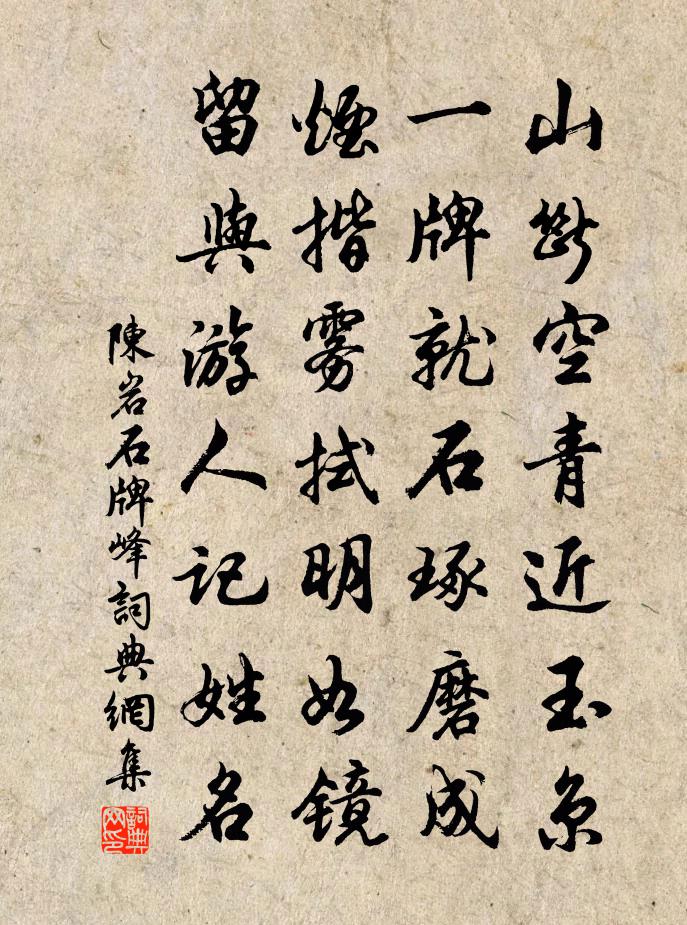 山斷空青近玉京
一牌就石琢磨成
煙揩雾拭明如镜
留與游人记姓名
陳岩石牌峰詞典網集
詞典网印